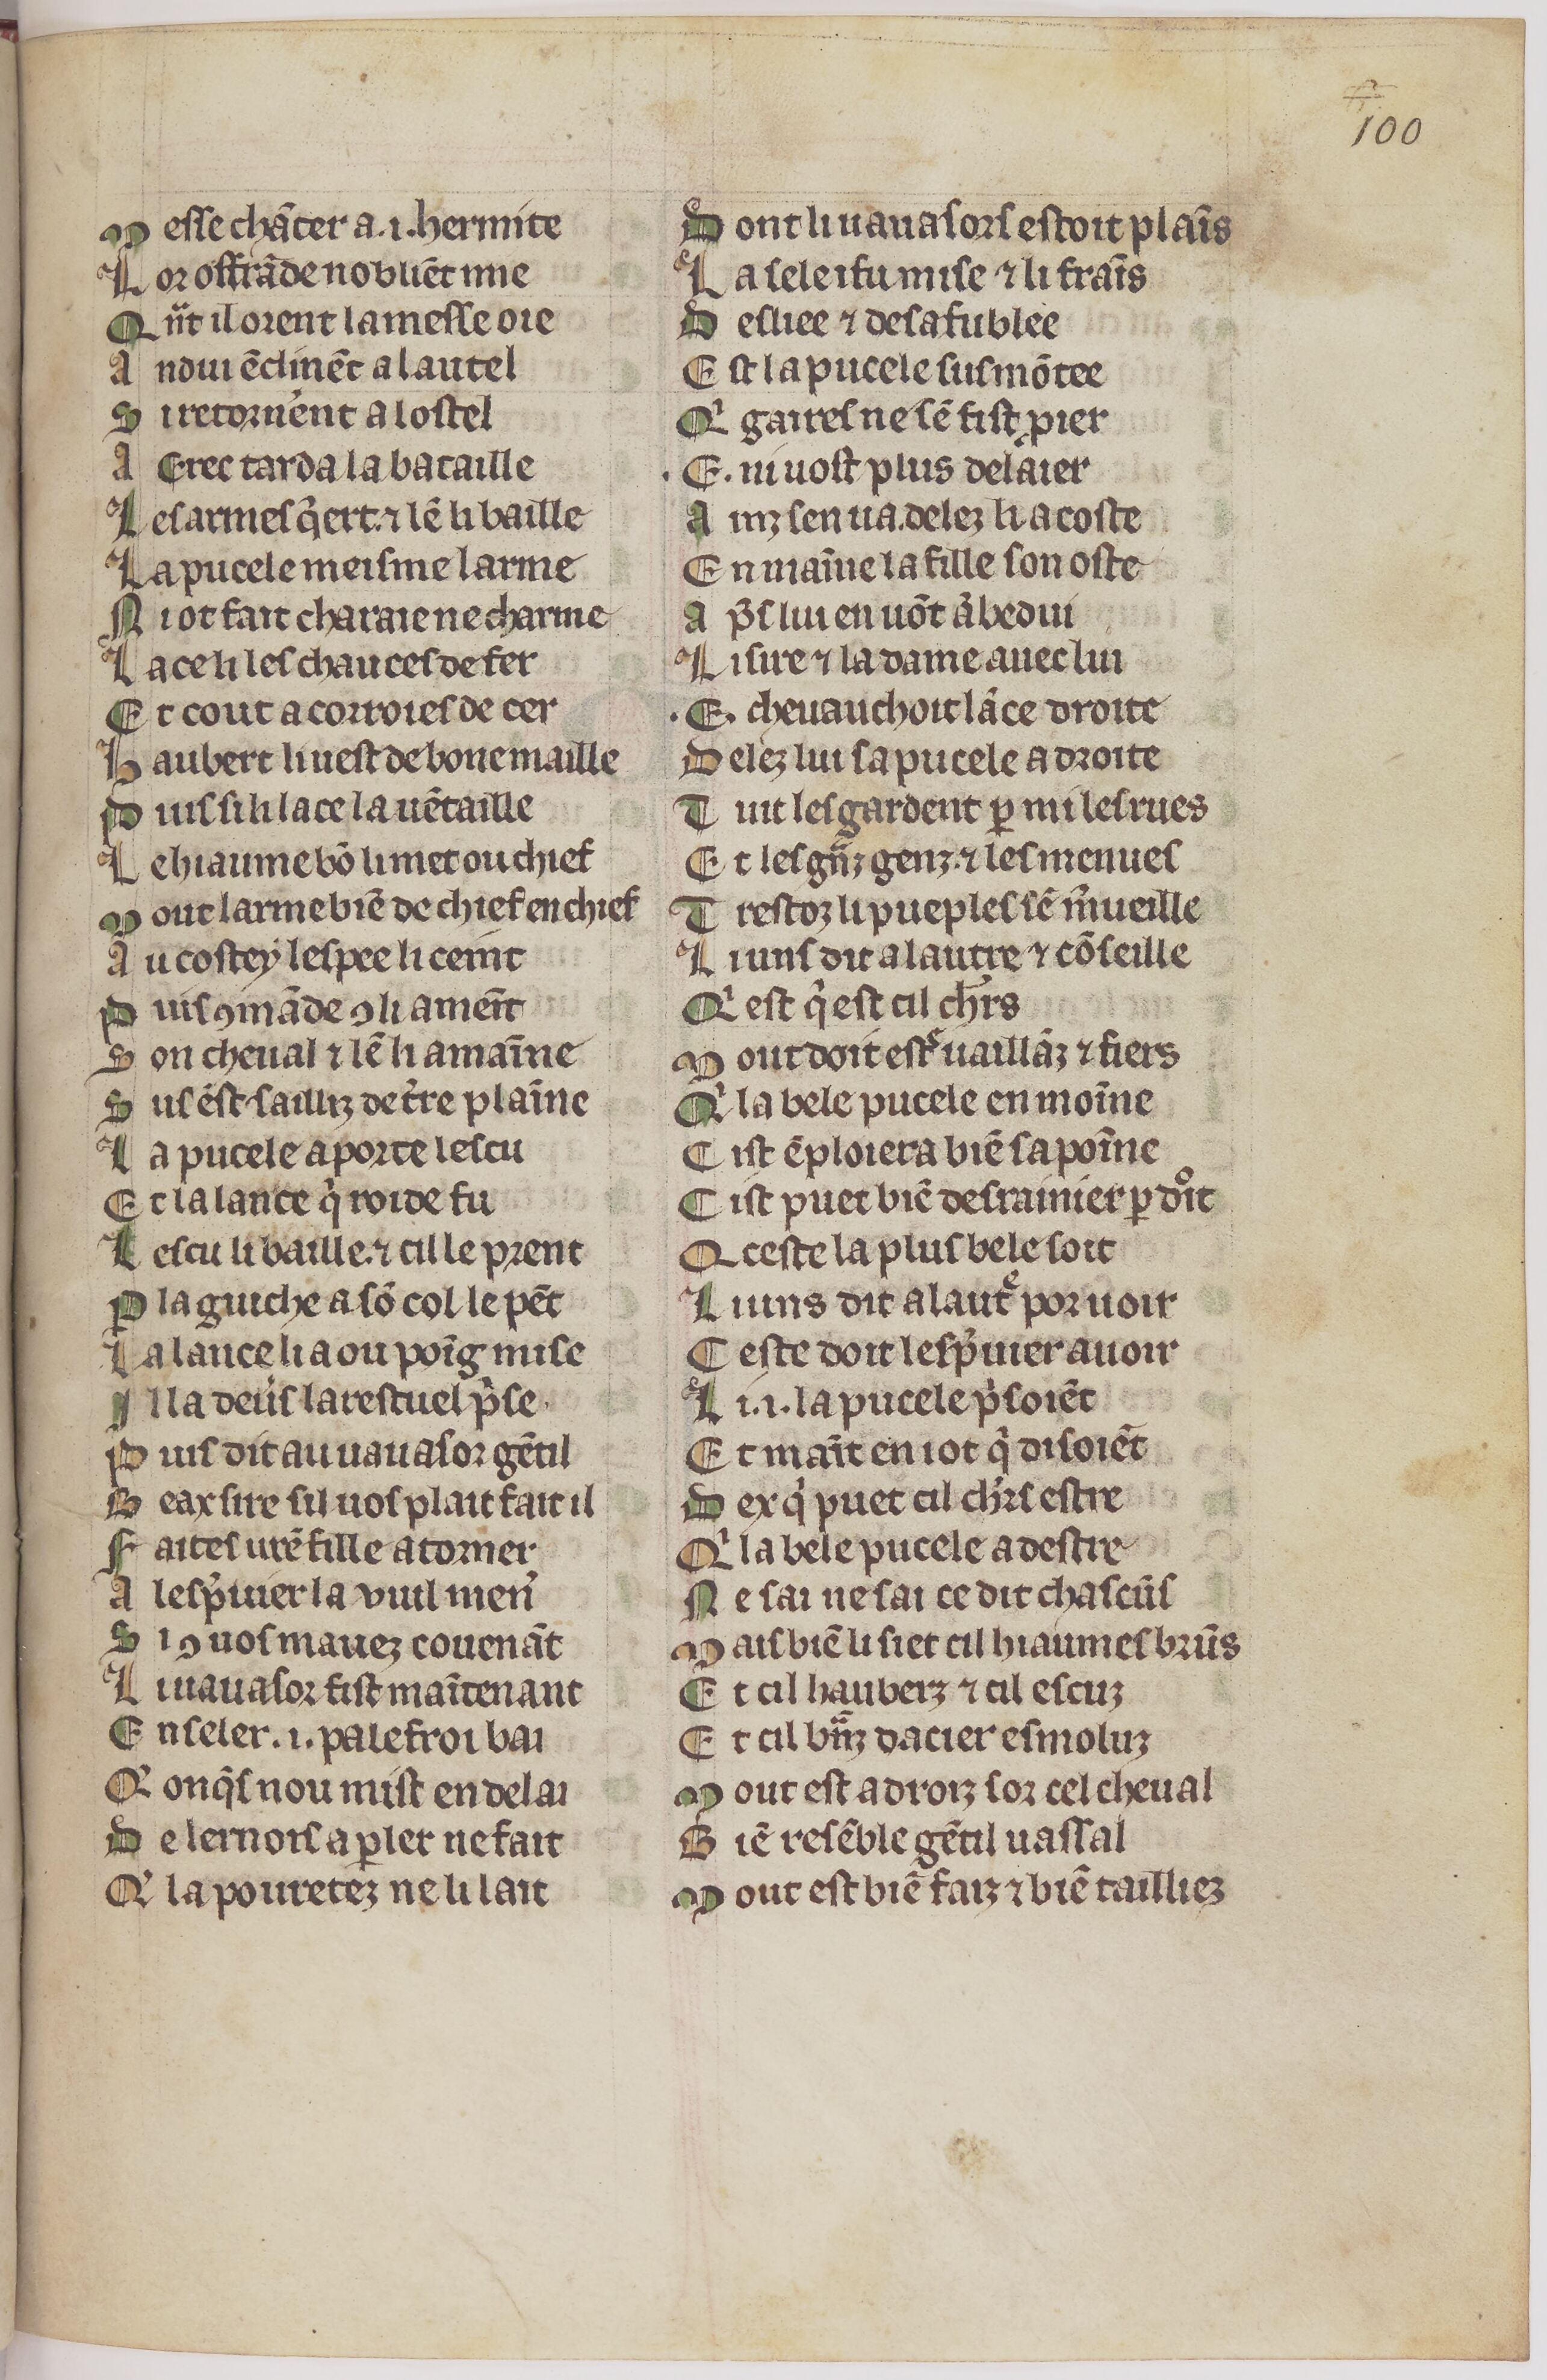 100
Messe chãter a .i. hermite
Lor offrãde nobliẽt mie
Qñt il orent la messe oie
Andui ẽclinẽt a lautel
Si retornẽnt a lostel
A Erec tarda la bataille
Les armes q̃ert. ⁊ lẽ li baille
La pucele meisme larme
Ni ot fait charaie ne charme
Lace li les chauces de fer
Et cout a corroies de cer
Haubert li uest de bone maille
Puis si li lace la uẽtaille
Le hiaume bõ li met ou chief
Mout larme biẽ de chief en chief
Au costey lespee li ceint
Puis ꝯmãde ꝯ li ameĩt
Son cheual ⁊ lẽ li amaĩne
Sus ẽst sailliz de t̃re plaĩne
La pucele aporte lescu
Et la lance q̃ roide fu
Lescu li baille. ⁊ cil le prent
P la guiche a sõ col le pẽt
La lance li a ou poĩg mise
Il la deũs larestuel p̃se.
Puis dit au uauasor gẽtil
Beax sire sil uos plait fait il
Faites urẽ fille atorner
A lesp̃uier la vuil men̉
Si ꝯ uos mauez couenãt
Li uauasor fist maĩtenant
Enseler .i. palefroi bai
Qͥ onq̃s nou mist en delai
De lernois a ꝑler ne fait
Qͥ la pouretez ne li lait
Dont li uauasors estoit plaĩs
La sele i fu mise ⁊ li fraĩs
Desliee ⁊ desafublee
Est la pucele sus mõtee
Qͥ gaires ne sẽ fist ꝓier
.E. ni uost plus delaier
Ainz sen ua. delez li a coste
En maĩne la fille son oste
A p̃s lui en uõt ãbedui
Li sire ⁊ la dame auec lui
.E. cheuauchoit lãce droite
Delez lui sa pucele a droite
Tuit les gardent ꝑ mi les rues
Et les gñz genz. ⁊ les menues
Trestoz li pueples sẽ m̃ueille
Li uns dit a lautre ⁊ cõseille
Qͥ est q̃ est cil ch̃rs
Mout doit estͤ uaillãz ⁊ fiers
Qͥ la bele pucele en moĩne
Cist ẽploiera biẽ sa poĩne
Cist puet biẽ desrainier ꝑ doͦit
Q ceste la plus bele soit
Li uns dit a lautͤ por uoir
Ceste doit lesp̃uier auoir
Li .i. la pucele p̃soiẽt
Et maĩt en i ot q̃ disoiẽt
Dex q̃ puet cil ch̃rs estre
Qͥ la bele pucele adestre
Ne sai ne sai ce dit chascũs
Mais biẽ li siet cil hiaumes brũs
Et cil hauberz ⁊ cil escuz
Et cil bñz dacier esmoluz
Mout est adroiz sor cel cheual
Biẽ resẽble gẽtil uassal
Mout est biẽ faiz ⁊ biẽ tailliez